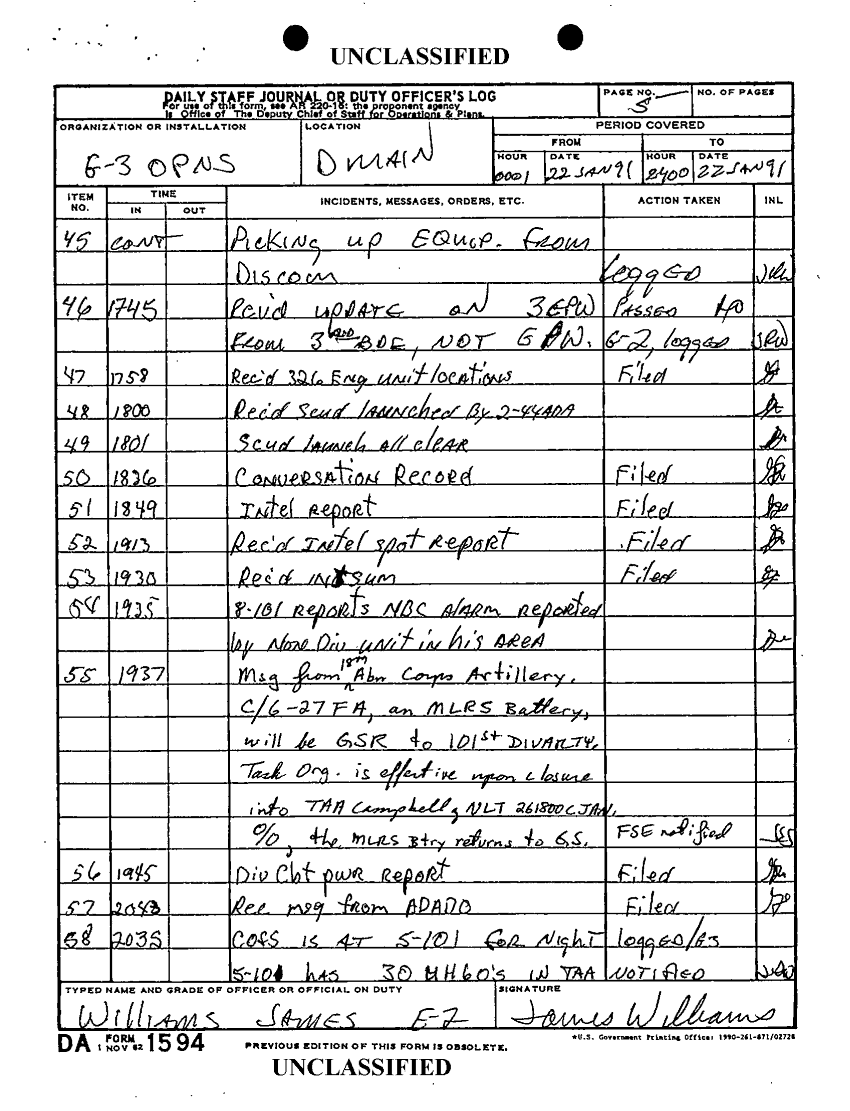 UNCLASSIFIED
DAILY STAFF JOURNAL OR DUTY OFFICER'S LOG
For use of this form, see AR 220-15: the proponent agency
is Office of The Deputy Chief of Staff for Operations & Plans.
PAGE NO. 5
NO. OF PAGES
ORGANIZATION OR INSTALLATION
G-3 OPNS
LOCATION
DMAIN
PERIOD COVERED
FROM TO
HOUR DATE HOUR DATE
0001 22 JAN 91 2400 22 JAN 91
ITEM NO. TIME IN OUT INCIDENTS, MESSAGES, ORDERS, ETC. ACTION TAKEN INL
45 CONT Picking up EQUIP. From
Discom logged
46 1745 Rcv'd UPDATE on 3 EPW Passed to
From 3rd BDE, NOT EPW. G-2, logged JRW
47 1758 Rec'd 326 Eng unit locations Filed
48 1800 Rec'd Scud launched By 2-44 ADA
49 1801 Scud launch All clear
50 1826 Conversation Record Filed
51 1849 Intel report Filed
52 1913 Rec'd Intel spot Report Filed
53 1930 Rec'd INTSum Filed
54 1935 8-101 reports NBC Alarm reported
by None Div unit in his AREA
55 1937 Msg from 18th Abn Corps Artillery.
C/6-27 FA, an MLRS Battery,
will be GSR to 101st DIVARTY.
Task Org. is effective upon closure
into TAA Campbell, NLT 261800C JAN.
O/O, the MLRS Btry returns to G.S. FSE notified
56 1945 Div Cbt pwr Report Filed
57 Rec msg from Filed
58 2035 COFS is AT 5-101 for Night logged/G3
5-101 has 30 MH60's in TAA Notified
TYPED NAME AND GRADE OF OFFICER OR OFFICIAL ON DUTY
Williams James E-7
SIGNATURE
James Williams
DA FORM 1 NOV 62 1594
PREVIOUS EDITION OF THIS FORM IS OBSOLETE.
*U.S. Government Printing Office: 1990-261-871/02726
UNCLASSIFIED